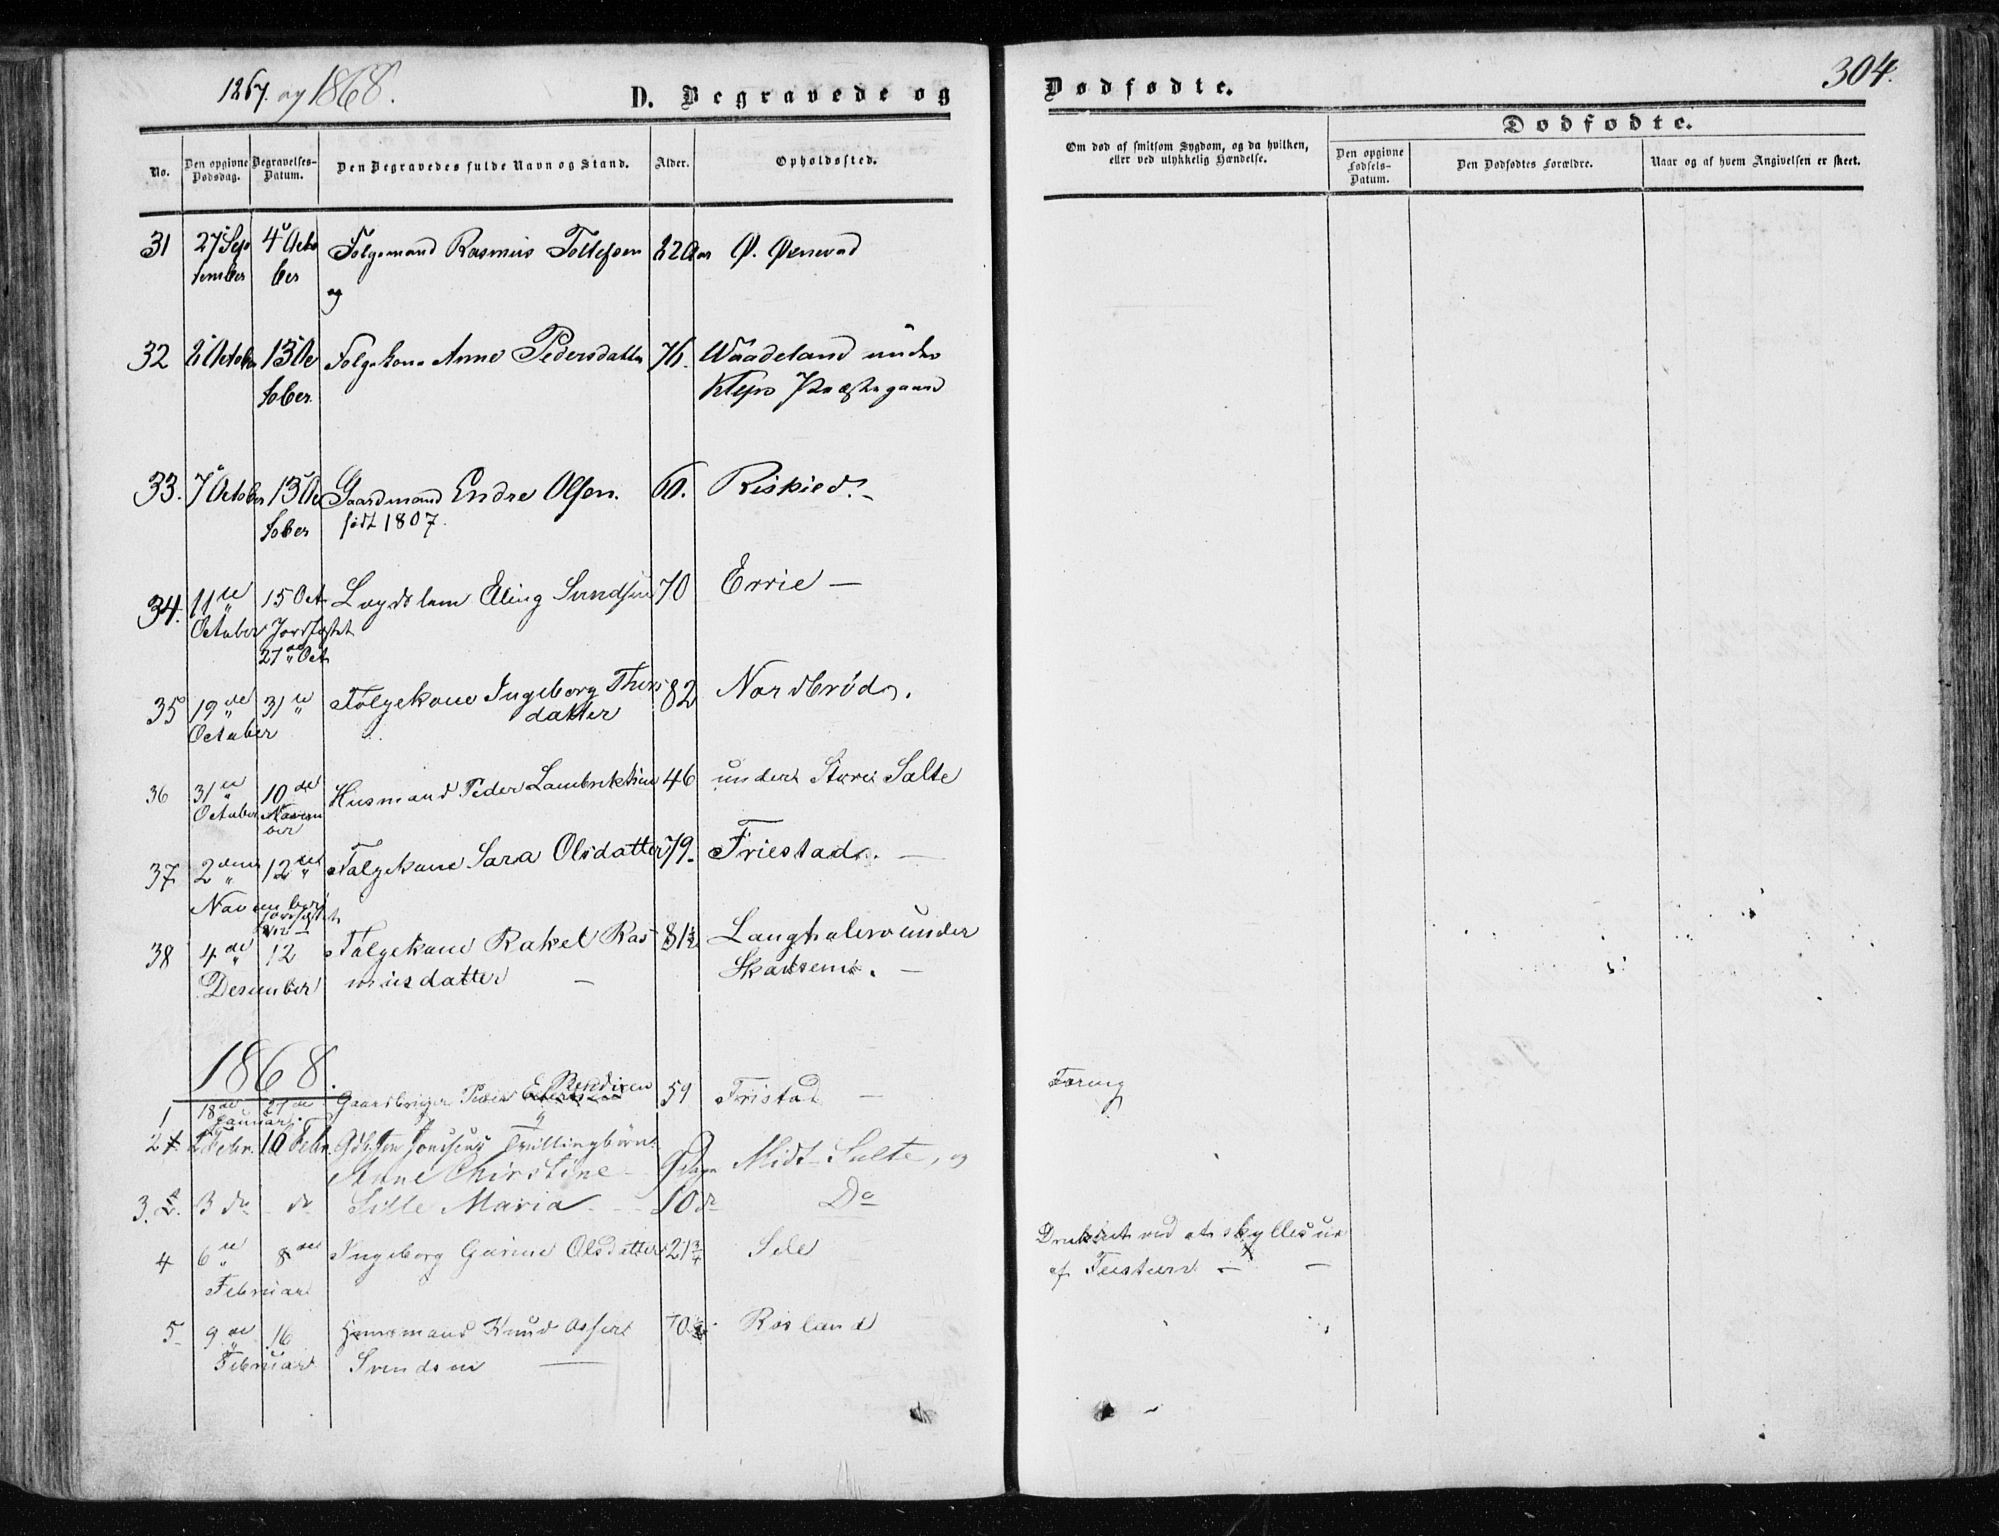 1867. og 1868.
D. Begravede og
Dødfødte.
304.
No.
Den opgivne Dødsdag.
Begravelses-Datum.
Den Begravedes fulde Navn og Stand.
Alder.
Opholdssted.
Om død af smitsom Sygdom, og da hvilken, eller ved ulykkelig Hændelse.
Dødfødte.
Den opgivne Fødsels-Datum.
Den Dødfødtes Forældre.
Naar og af hvem Angivelsen er skeet.
31 27 Sep 4 Octo Folgemand Rasmus Tollefsen 82 Aar Ø. Øxnevad
tember ber og
32 October 13 Oc Folgekone Anne Pedersdatter 76. Waadeland under
tober Klepps Præstegaard
33. 7 October 13 Oc Gaardmand Endre Olsen. 60. Riskied.
tober født 1807.
34. 11te 15 Oct Lægdslem Eling 70 Errie —
October Jordfæstet
27de Oct
35 19de 31te Folgekone Ingeborg 82 Nordbrød.
October datter
36 31te 10de Husmand Peder Lambrektsen 46 under Store Salte
October Novem
ber
37 2den 12te Folgekone Sara Olsdatter 79. Friestad. —
November jordfæstet
38 4de 12 Folgekone Rakel Ras 81½ under
Desember musdatter — .
1868.
1 18de 27de Gaardbruger Peder Bendixen 59 Fristad —
Januar
Farung
2 2 Febr. 10 Febr. Tvillingbørn
Anne Chirstine — 9 Dage Midt-Salte, og
3. 3 do do Sille Maria. 10 do Do
4 6te 8de Ingeborg Gurine Olsdatter 21¾ Sele
Februar
Druknet ved at skylles ud
af
5 9de 16 Huusmand Knud 70 Rosland
Februar Svendsen —